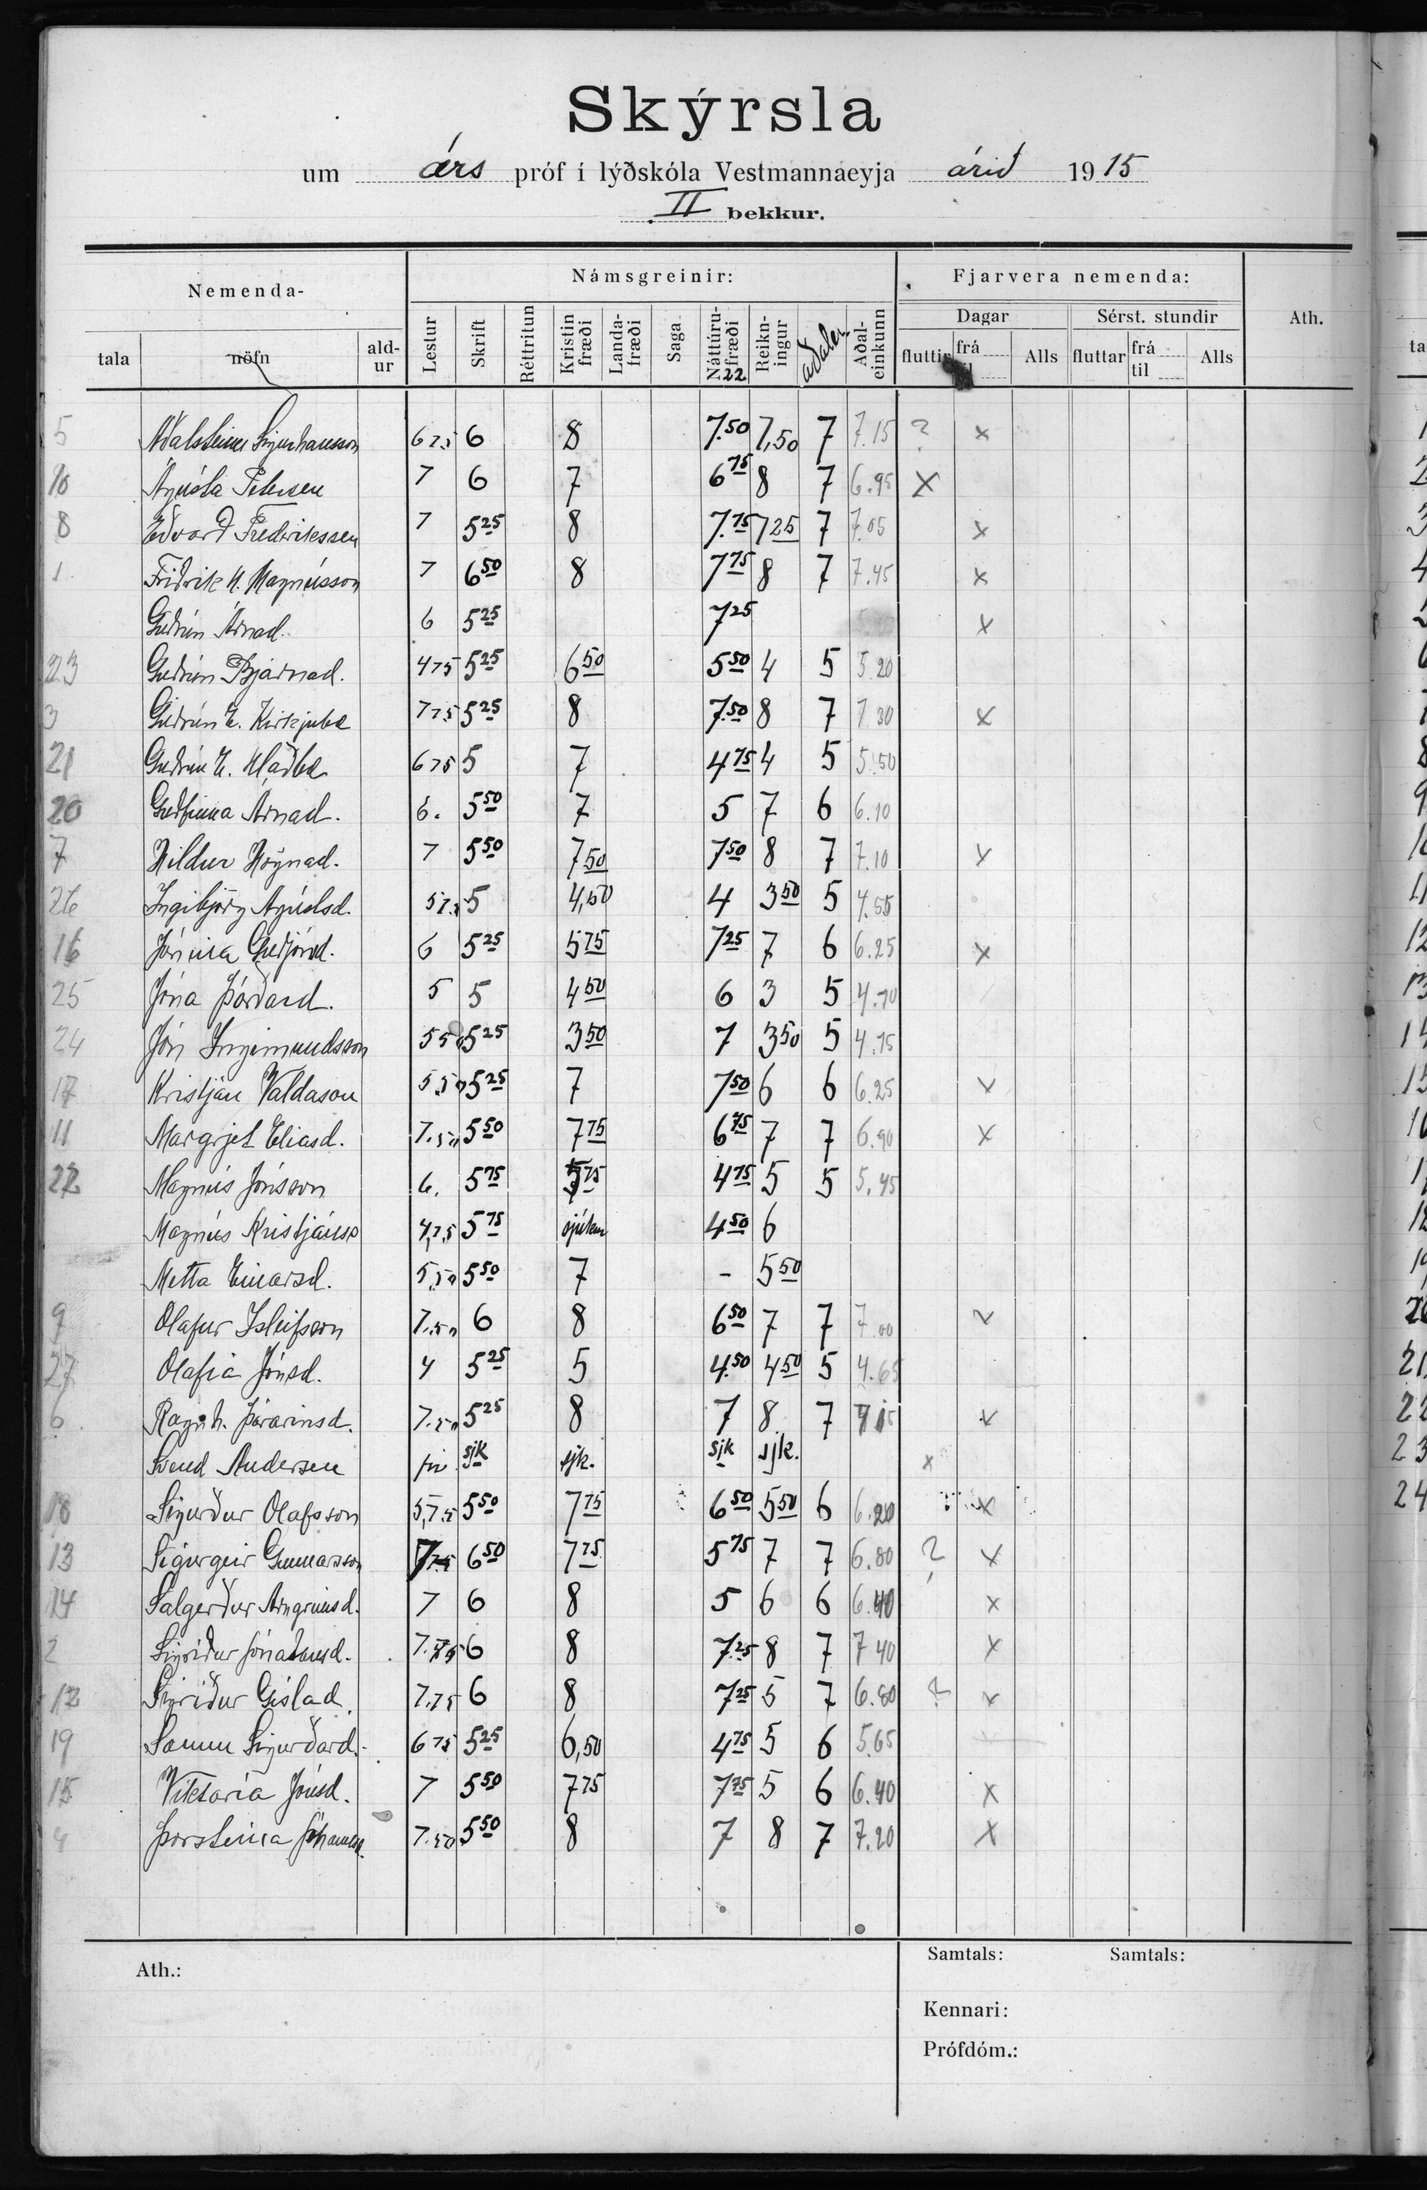 Skýrsla
um árs próf í lýðskóla Vestmannaeyja árið 1915
II bekkur.
Nemenda- Námsgreinir: Fjarvera nemenda: Ath.
Dagar Sérst. stundir
tala nöfn ald-ur Lestur Skrift Réttritun Kristin fræði Landa-fræði Saga Náttúru-fræði 22 Reikn-ingur aðaleink. Aðal-einkunn fluttir frá til Alls fluttar frá til Alls
5 Aðalsteinn Sigurhansson 6 75 6 8 7.50 7,50 7 7.15 ? x
10 Ágústa Petersen 7 6 7 6 75 8 7 6.95 x
8 Edvard Frederikssen 7 5 25 8 7.75 7 25 7 7.05 x
1 Friðrik H. Magnússon 7 6 50 8 7 75 8 7 7.45 x
Guðrún Árnad. 6 5 25 7 25 x
23 Guðrún Bjarnad. 4 75 5 25 6 50 5 50 4 5 5.20
3 Guðrún E. Kirkjubæ 7 75 5 25 8 7.50 8 7 7.30 x
21 Guðrún E. Hlaðbæ 6 75 5 7 4 75 4 5 5.50
20 Guðfinna Árnad. 6. 5 50 7 5 7 6 6.10
7 Hildur Högnad. 7 5 50 7 50 7 50 8 7 7.10 x
26 Ingibjörg Ágústsd. 5 75 5 4,50 4 3 50 5 4.55
16 Jónína Guðjónsd. 6 5 25 5 75 7 25 7 6 6.25 x
25 Jóna Þórðard. 5 5 4 50 6 3 5 4.70
24 Jón Ingimundsson 5 50 5 25 3 50 7 3 50 5 4.75
17 Kristján Valdason 5,50 5 25 7 7 50 6 6 6.25 x
11 Margrjet Elíasd. 7.50 5 50 7 75 6 75 7 7 6.90 x
22 Magnús Jónsson 6. 5 75 5 75 4 75 5 5 5.45
Magnús Kristjánss 4,75 5 75 sjúkur 4 50 6
Metta Einarsd. 5,50 5 50 7 - 5 50
9 Olafur Isleifsson 7.50 6 8 6 50 7 7 7.00 x
27 Olafía Jónsd. 4 5 25 5 4.50 4 50 5 4.65
6 Ragnh. Þórarinsd. 7.50 5 25 8 7 8 7 7.15 x
Svend Andersen sjk sjk. sjk sjk. x
18 Sigurður Olafsson 5,75 5 50 7 75 6 50 5 50 6 6.20 x
13 Sigurgeir Gunnarsson 7 75 6 50 7 75 5 75 7 7 6.80 ? x
14 Salgerður Arngrímsd. 7 6 8 5 6 6 6.40 x
2 Sigríður Jónatansd. 7.75 6 8 7.25 8 7 7 40 x
12 Sigríður Gíslad. 7.75 6 8 7 25 5 7 6.80 ? x
19 Sigurðard. 6 75 5 25 6,50 4 75 5 6 5.65
15 Viktoría Jónsd. 7 5 50 7 75 7 75 5 6 6.40 x
4 Þorsteina Jóhannsd. 7.50 5 50 8 7 8 7 7.20 x
Ath.: Samtals: Samtals:
Kennari:
Prófdóm.: